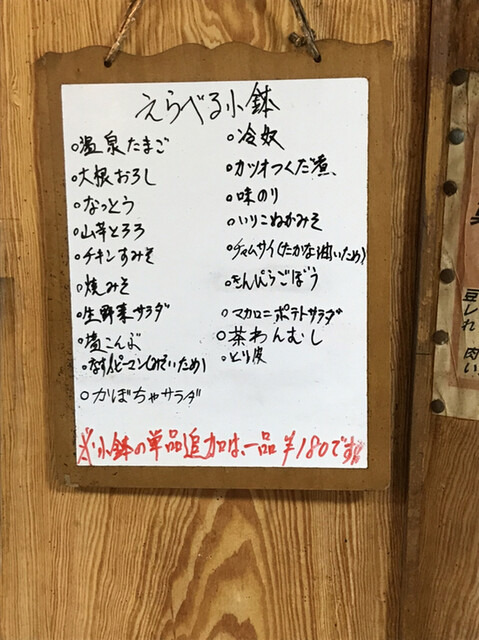 えらべる小鉢
○温泉たまご
○大根おろし
○なっとう
○山芋とろろ
○チキンすみそ
○焼みそ
○生野菜サラダ
○塩こんぶ
○なす、ピーマン(みそいため)
○かぼちゃサラダ
○冷奴
○カツオつくだ煮、
○味のり
○いりこぬかみそ
○チャムサイ(たかな油いため)
○きんぴらごぼう
○マカロニポテトサラダ
○茶わんむし
○とり皮
※小鉢の単品追加は、一品¥180です!!